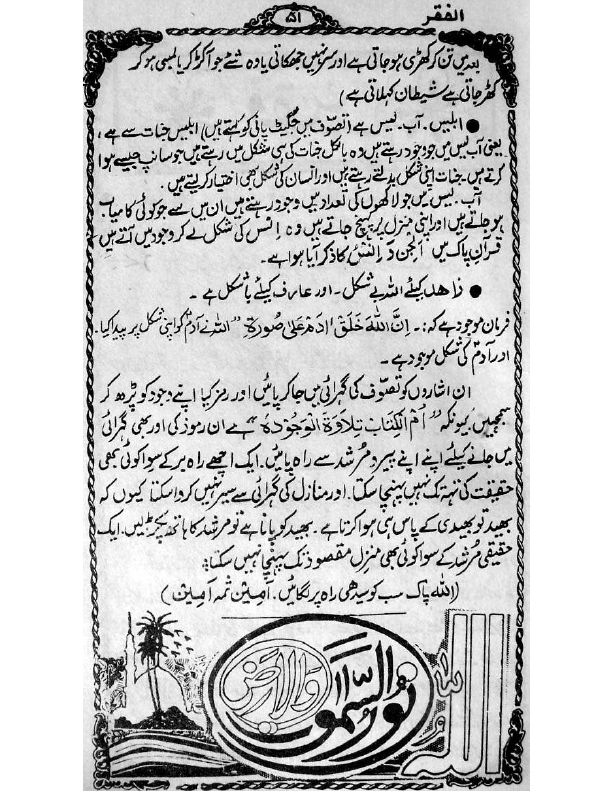 الفقر
۵۱
بعد میں تن کر کھڑی ہو جاتی ہے اور سر نہیں جھکاتی یا وہ شئے جو آکڑ کر یا لمبی ہو کر
کھڑ جاتی ہے شیطان کہلاتی ہے)
● ابلیس۔ آب۔ لیس ہے (تصوّف میں جگیٹ پانی کو کہتے ہیں) ابلیس جنات سے ہے،
یعنی آب لیس میں جو وجود رہتے ہیں وہ بالکل جنات کی سی شکل میں رہتے ہیں جو سانپ جیسے ہوا
کرتے ہیں۔ جنات اپنی شکل بدلتے رہتے ہیں اور انسان کی شکل بھی اختیار کرلیتے ہیں۔
آب۔ لیس میں جو لاکھوں کی تعداد میں وجود رہتے ہیں ان میں سے جو کوئی کامیاب
ہو جاتے ہیں اور اپنی منزل پر پہنچ جاتے ہیں وہ اِنس کی شکل لے کر وجود میں آتے ہیں
قرآن پاک میں الجن والانس کا ذکر آیا ہوا ہے۔
● زاھد کیلئے اللہ بے شکل۔ اور عارف کیلئے باشکل ہے۔
فرمان موجود ہے کہ:۔ اِنَّ اللهَ خَلَقَ اٰدَمَ عَلٰى صُورَةِ "اللہ نے آدمؑ کو اپنی شکل پر پیدا کیا۔
اور آدمؑ کی شکل موجود ہے۔
ان اشاروں کو تصوّف کی گہرائی میں جا کر پائیں اور رمز کیا اپنے وجود کو پڑھ کر
سمجھیں کیونکہ "اُمُ الْکِتَابِ تِلَاوَةَ الْوَجُوْدِهْ" ہے ان رموز کی اور بھی گہرائی
میں جانے کیلئے اپنے اپنے پیر و مُرشد سے راہ پائیں۔ ایک اچھے راہ بر کے سوا کوئی بھی
حقیقت کی تہہ تک نہیں پہنچا سکتا۔ اور منازل کی گہرائی سے سیر نہیں کروا سکتا کیوں کہ
بھید تو بھیدی کے پاس ہی ہوا کرتا ہے۔ بھید کو پانا ہے تو مرشد کا ہاتھ پکڑ لیں۔ ایک
حقیقی مُرشد کے سوا کوئی بھی منزل مقصود تک پہنچا نہیں سکتا۔
(اللہ پاک سب کو سیدھی راہ پر لگائیں۔ آمین ثمہ آمین)
الله
نور السموت
والارض